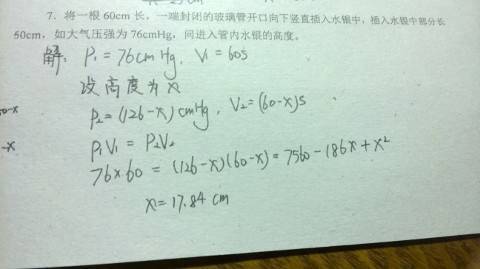 7．将一根60cm长，一端封闭的玻璃管开口向下竖直插入水银中，插入水银中部分长
50cm，如大气压强为76cmHg，问进入管内水银的高度。
解：P₁=76cmHg, V₁=60s
设高度为x
P₂=(126-x)cmHg, V₂=(60-x)s
P₁V₁=P₂V₂
76×60=(126-x)(60-x)=7560-186x+x²
x=17.84 cm
-x